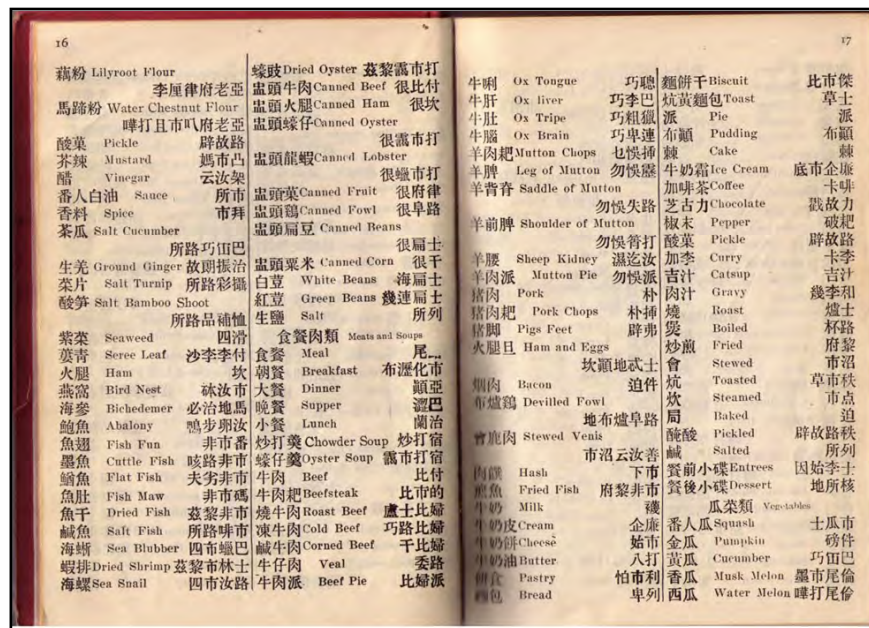 16
藕粉 Lilyroot Flour
李厘律府老亞
馬蹄粉 Water Chestnut Flour
嘩打且市叭府老亞
酸菓 Pickle 辟故路
芥辣 Mustard 媽市凸
醋 Vinegar 云汝架
番人白油 Sauce 所市
香料 Spice 市拜
茶瓜 Salt Cucumber
所路巧畑巴
生羌 Ground Ginger 故朗振治
菜片 Salt Turnip 所路彩攝
酸笋 Salt Bamboo Shoot
所路品補恤
紫菜 Seaweed 四滑
蔞青 Seree Leaf 沙李李付
火腿 Ham 坎
燕窩 Bird Nest 砵汝市
海參 Bichedemer 必治地馬
鮑魚 Abalony 鴨步卵汝
魚翅 Fish Fun 非市番
墨魚 Cuttle Fish 咳路非市
鰨魚 Flat Fish 夫劣非市
魚肚 Fish Maw 非市碼
魚干 Dried Fish 茲黎非市
鹹魚 Salt Fish 所路啡市
海蜥 Sea Blubber 四布蠟巴
蝦排 Dried Shrimp 茲黎布林士
海螺 Sea Snail 四市汝路
蠔豉 Dried Oyster 茲黎靄市打
盅頭牛肉 Canned Beef 很比付
盅頭火腿 Canned Ham 很坎
盅頭蠔仔 Canned Oyster
很靄市打
盅頭龍蝦 Canned Lobster
很蠟市打
盅頭菓 Canned Fruit 很府律
盅頭鷄 Canned Fowl 很阜路
盅頭扁豆 Canned Beans
很扁士
盅頭粟米 Canned Corn 很干
白荳 White Beans 海扁士
紅荳 Green Beans 幾連扁士
生鹽 Salt 所列
食餐肉類 Meats and Soups
食餐 Meal 尾
朝餐 Breakfast 布瀝化市
大餐 Dinner 顚亞
晚餐 Supper 澀巴
小餐 Lunch 蘭治
炒打羹 Chowder Soup 炒打宿
蠔仔羹 Oyster Soup 靄市打宿
牛肉 Beef 比付
牛肉耙 Beefsteak 比市的
燒牛肉 Roast Beef 盧士比婦
凍牛肉 Cold Beef 巧路比婦
鹹牛肉 Corned Beef 干比婦
牛仔肉 Veal 委路
牛肉派 Beef Pie 比婦派
17
牛脷 Ox Tongue 巧聰
牛肝 Ox liver 巧李巴
牛肚 Ox Tripe 巧粗獵
牛腦 Ox Brain 巧卑連
羊肉耙 Mutton Chops 乜悞揷
羊脾 Leg of Mutton 勿悞靂
羊背脊 Saddle of Mutton
勿悞失路
羊前脾 Shoulder of Mutton
勿悞筲打
羊腰 Sheep Kidney 濕迄汝
羊肉派 Mutton Pie 勿悞派
猪肉 Pork 朴
猪肉耙 Pork Chops 朴揷
猪脚 Pigs Feet 辟弗
火腿旦 Ham and Eggs
坎顚地忒士
烟肉 Bacon 迫件
布爐鷄 Devilled Fowl
地布爐阜路
會鹿肉 Stewed Venis
市沼云汝善
Hash 下市
煎魚 Fried Fish 府黎非市
牛奶 Milk 襪
牛奶皮 Cream 企廉
牛奶餅 Cheese 姑市
牛奶油 Butter 八打
餅食 Pastry 怕市利
麵包 Bread 卑列
麵餅干 Biscuit 比市傑
炕黃麵包 Toast 草士
派 Pie 派
布顚 Pudding 布顚
棘 Cake 棘
牛奶霜 Ice Cream 底市企廉
加啡茶 Coffee 卡啡
芝古力 Chocolate 戳故力
椒末 Pepper 破耙
酸菓 Pickle 辟故路
加李 Curry 卡李
吉汁 Catsup 吉汁
肉汁 Gravy 幾李和
燒 Roast 爐士
煲 Boiled 杯路
炒煎 Fried 府黎
會 Stewed 市沼
炕 Toasted 草市秩
炊 Steamed 市点
局 Baked 迫
醃酸 Pickled 辟故路秩
鹹 Salted 所列
餐前小碟 Entrees 因始李士
餐後小碟 Dessert 地所核
瓜菜類 Vegetables
番人瓜 Squash 士瓜市
金瓜 Pumpkin 磅件
黃瓜 Cucumber 巧畑巴
香瓜 Musk Melon 墨市尾倫
西瓜 Water Melon 嘩打尾倫